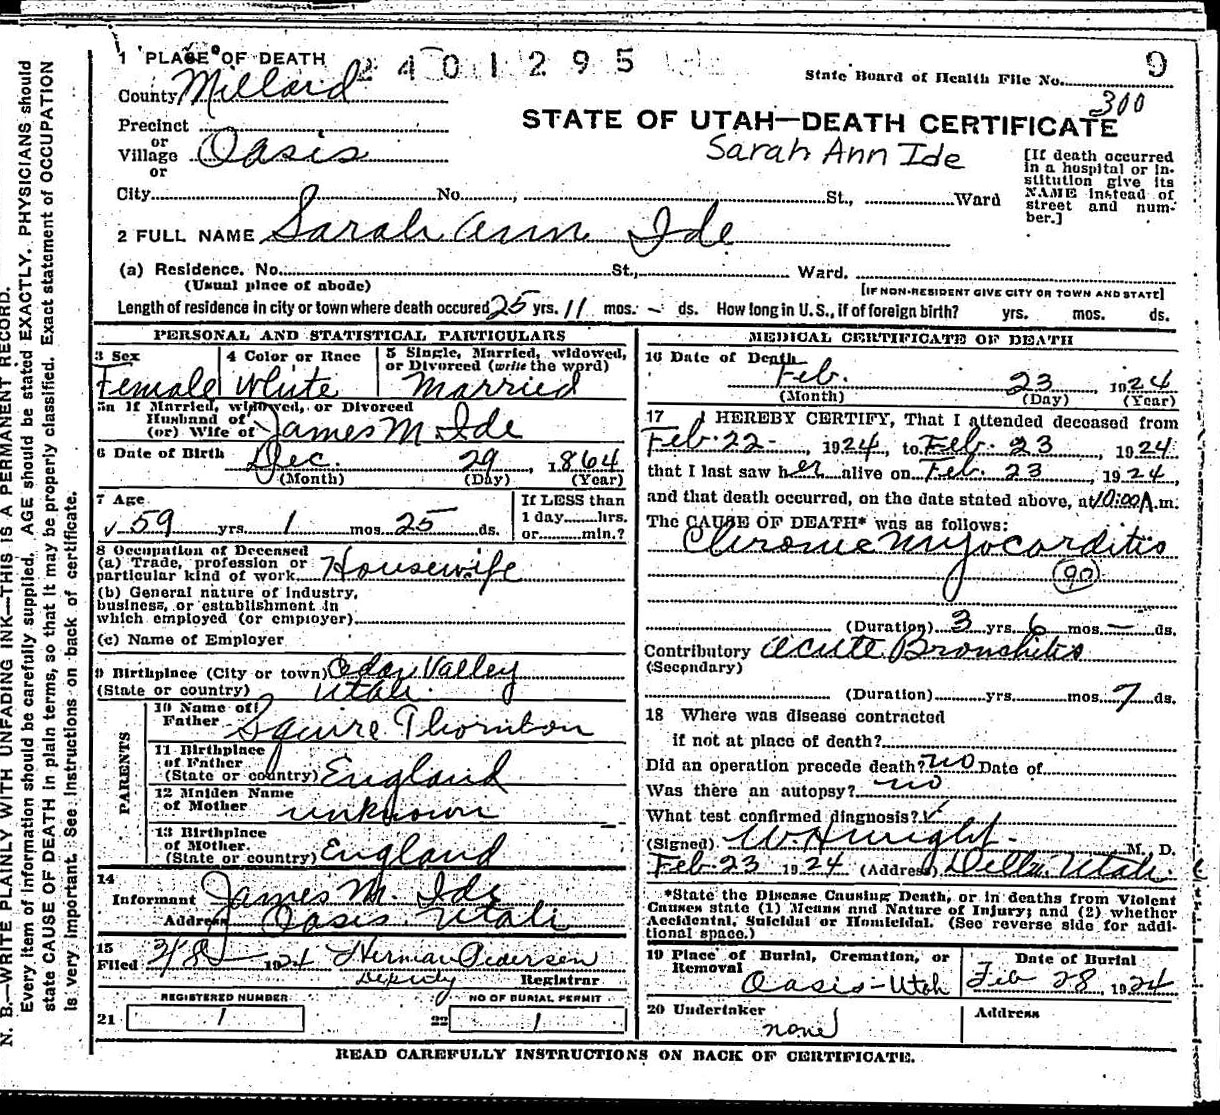 1 PLACE OF DEATH 2401295 9
State Board of Health File No.
300
County Millard
STATE OF UTAH—DEATH CERTIFICATE
Precinct
or
Village Oasis
or
Sarah Ann Ide
[If death occurred
in a hospital or in-
stitution give its
NAME instead of
street and num-
ber.]
City No. St., Ward
2 FULL NAME Sarah Ann Ide
(a) Residence. No. St., Ward.
(Usual place of abode) [IF NON-RESIDENT GIVE CITY OR TOWN AND STATE]
Length of residence in city or town where death occured 25 yrs. 11 mos. – ds. How long in U. S., if of foreign birth? yrs. mos. ds.
PERSONAL AND STATISTICAL PARTICULARS
3 Sex 4 Color or Race 5 Single, Married, widowed,
or Divorced (write the word)
Female White Married
5a If Married, widowed, or Divorced
Husband of
(or) Wife of James M. Ide
6 Date of Birth Dec. 29, 1864
(Month) (Day) (Year)
7 Age If LESS than
59 yrs. 1 mos. 25 ds. 1 day hrs.
or min.?
8 Occupation of Deceased
(a) Trade, profession or
particular kind of work Housewife
(b) General nature of industry,
business, or establishment in
which employed (or employer)
(c) Name of Employer
9 Birthplace (City or town) Cedar Valley
(State or country) Utah.
PARENTS
10 Name of
Father Squire Thornton
11 Birthplace
of Father
(State or country) England
12 Maiden Name
of Mother unknown
13 Birthplace
of Mother.
(State or country) England
14
Informant James M. Ide
Address Oasis Utah
15
Filed 3/8 1924 Herman Pederson
Deputy Registrar
REGISTERED NUMBER NO OF BURIAL PERMIT
21 1 22 1
MEDICAL CERTIFICATE OF DEATH
16 Date of Death
Feb. 23, 1924
(Month) (Day) (Year)
17 I HEREBY CERTIFY, That I attended deceased from
Feb. 22, 1924, to Feb. 23, 1924
that I last saw her alive on Feb. 23, 1924,
and that death occurred, on the date stated above, at 10:00 A.m.
The CAUSE OF DEATH* was as follows:
Chronic Myocorditis
90
(Duration) 3 yrs. 6 mos. – ds.
Contributory Acute Bronchitis
(Secondary)
(Duration) yrs. mos. 7 ds.
18 Where was disease contracted
if not at place of death?
Did an operation precede death? no Date of
Was there an autopsy? no
What test confirmed diagnosis? ✓
(Signed) M. D.
Feb 23 1924 (Address) Utah.
*State the Disease Causing Death, or in deaths from Violent
Causes state (1) Means and Nature of Injury; and (2) whether
Accidental, Suicidal or Homicidal. (See reverse side for addi-
tional space.)
19 Place of Burial, Cremation, or
Removal Date of Burial
Oasis – Utah Feb 28, 1924
20 Undertaker Address
none
READ CAREFULLY INSTRUCTIONS ON BACK OF CERTIFICATE.
N. B.—WRITE PLAINLY WITH UNFADING INK—THIS IS A PERMANENT RECORD.
Every item of information should be carefully supplied. AGE should be stated EXACTLY. PHYSICIANS should
state CAUSE OF DEATH in plain terms, so that it may be properly classified. Exact statement of OCCUPATION
is very important. See instructions on back of certificate.